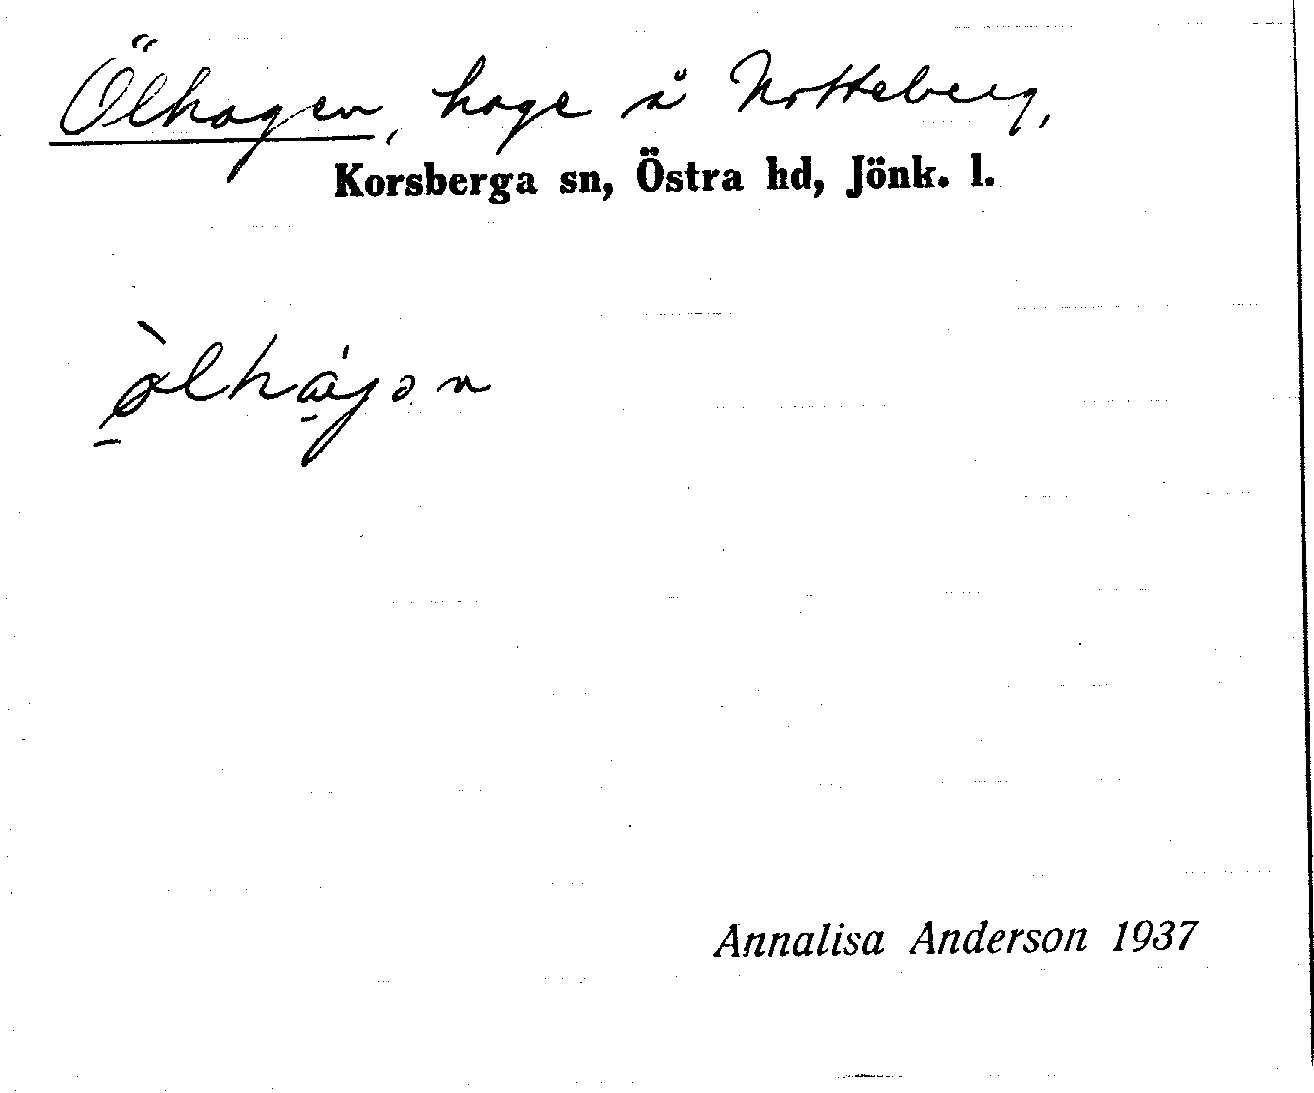 Ölhagen, hage å Notteberg,
Korsberga sn, Östra hd, Jönk. l.
Annalisa Anderson 1937